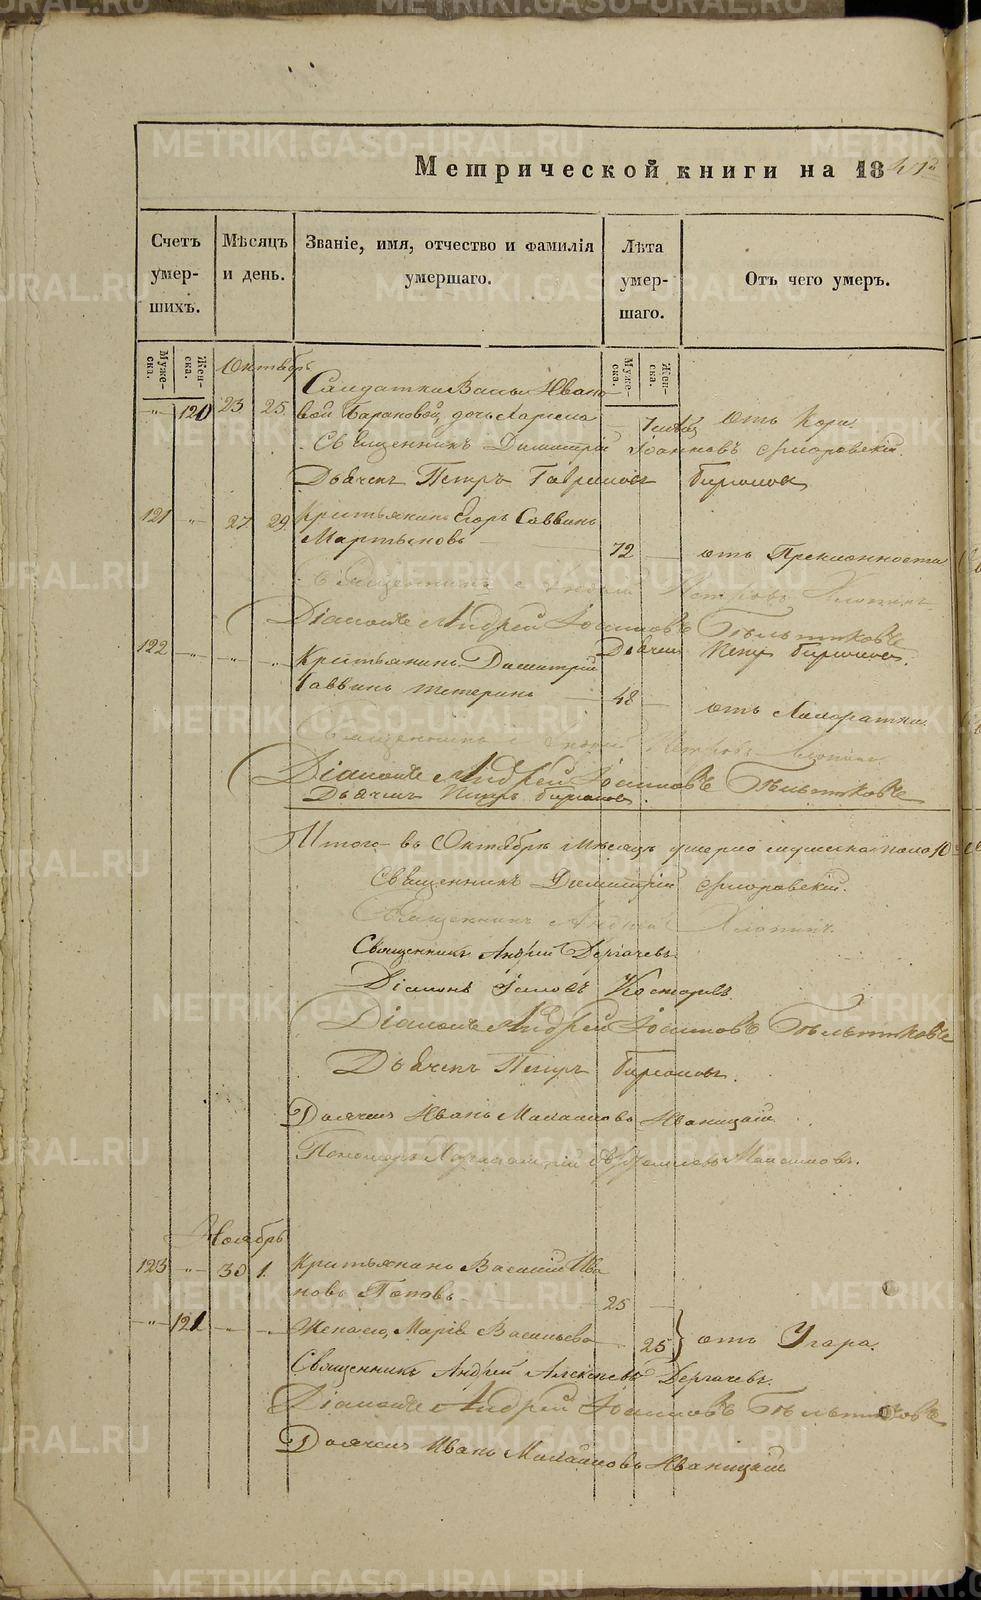 Метрической книги на 1841й
Счетъ умершихъ.
Мѣсяцъ и день.
Званіе, имя, отчество и фамилія умершаго.
Лѣта умершаго.
Отъ чего умеръ.
Мужеска.
Женска.
Мужеска.
Женска.
Октябрь
Солдатки Вассы Ивано
-"- 120 23 25 вой Барановой дочь Лариса 7 отъ Кори.
Священникъ Димитрій Іоанновъ Флоровскій.
Дьячекъ Петръ Гавриловъ Бирюковъ
121 -"- 27 29 Крестьянинъ Егоръ Саввинъ
Мартыновъ 72 отъ Преклонности
Священникъ Андрей Петровъ Хлопинъ.
Діаконъ Андрей Іоакимовъ Бѣльтюковъ
Дьячекъ Петръ Бирюковъ.
122 -"- -"- -"- Крестьянинъ Димитрій
Саввинъ Тетеринъ 48 отъ Лихорадки
Священникъ Андрей Петровъ Хлопинъ
Діаконъ Андрей Іоакимовъ Бѣльтюковъ
Дьячекъ Петръ Бирюковъ.
Итого въ Октябрѣ Мѣсяцѣ умерло мужеска пола 10
Священникъ Димитрій Флоровскій.
Священникъ Андрей Хлопинъ.
Священникъ Андрей Дергачевъ
Діаконъ Костаревъ.
Діаконъ Андрей Іоакимовъ Бѣльтюковъ
Дьячекъ Петръ Бирюковъ.
Дьячекъ Иванъ Михайловъ Иваницкій
Пономарь Максимовъ.
Ноябрь
123 -"- 30 1. Крестьянинъ Василій Ива
новъ Поповъ 25
-"- 121 -"- -"- Жена его, Марія Васильева 25 отъ Угара.
Священникъ Андрей Алексѣевъ Дергачевъ.
Діаконъ Андрей Іоакимовъ Бѣльтюковъ
Дьячекъ Иванъ Михайловъ Иваницкій
METRIKI.GASO-URAL.RU